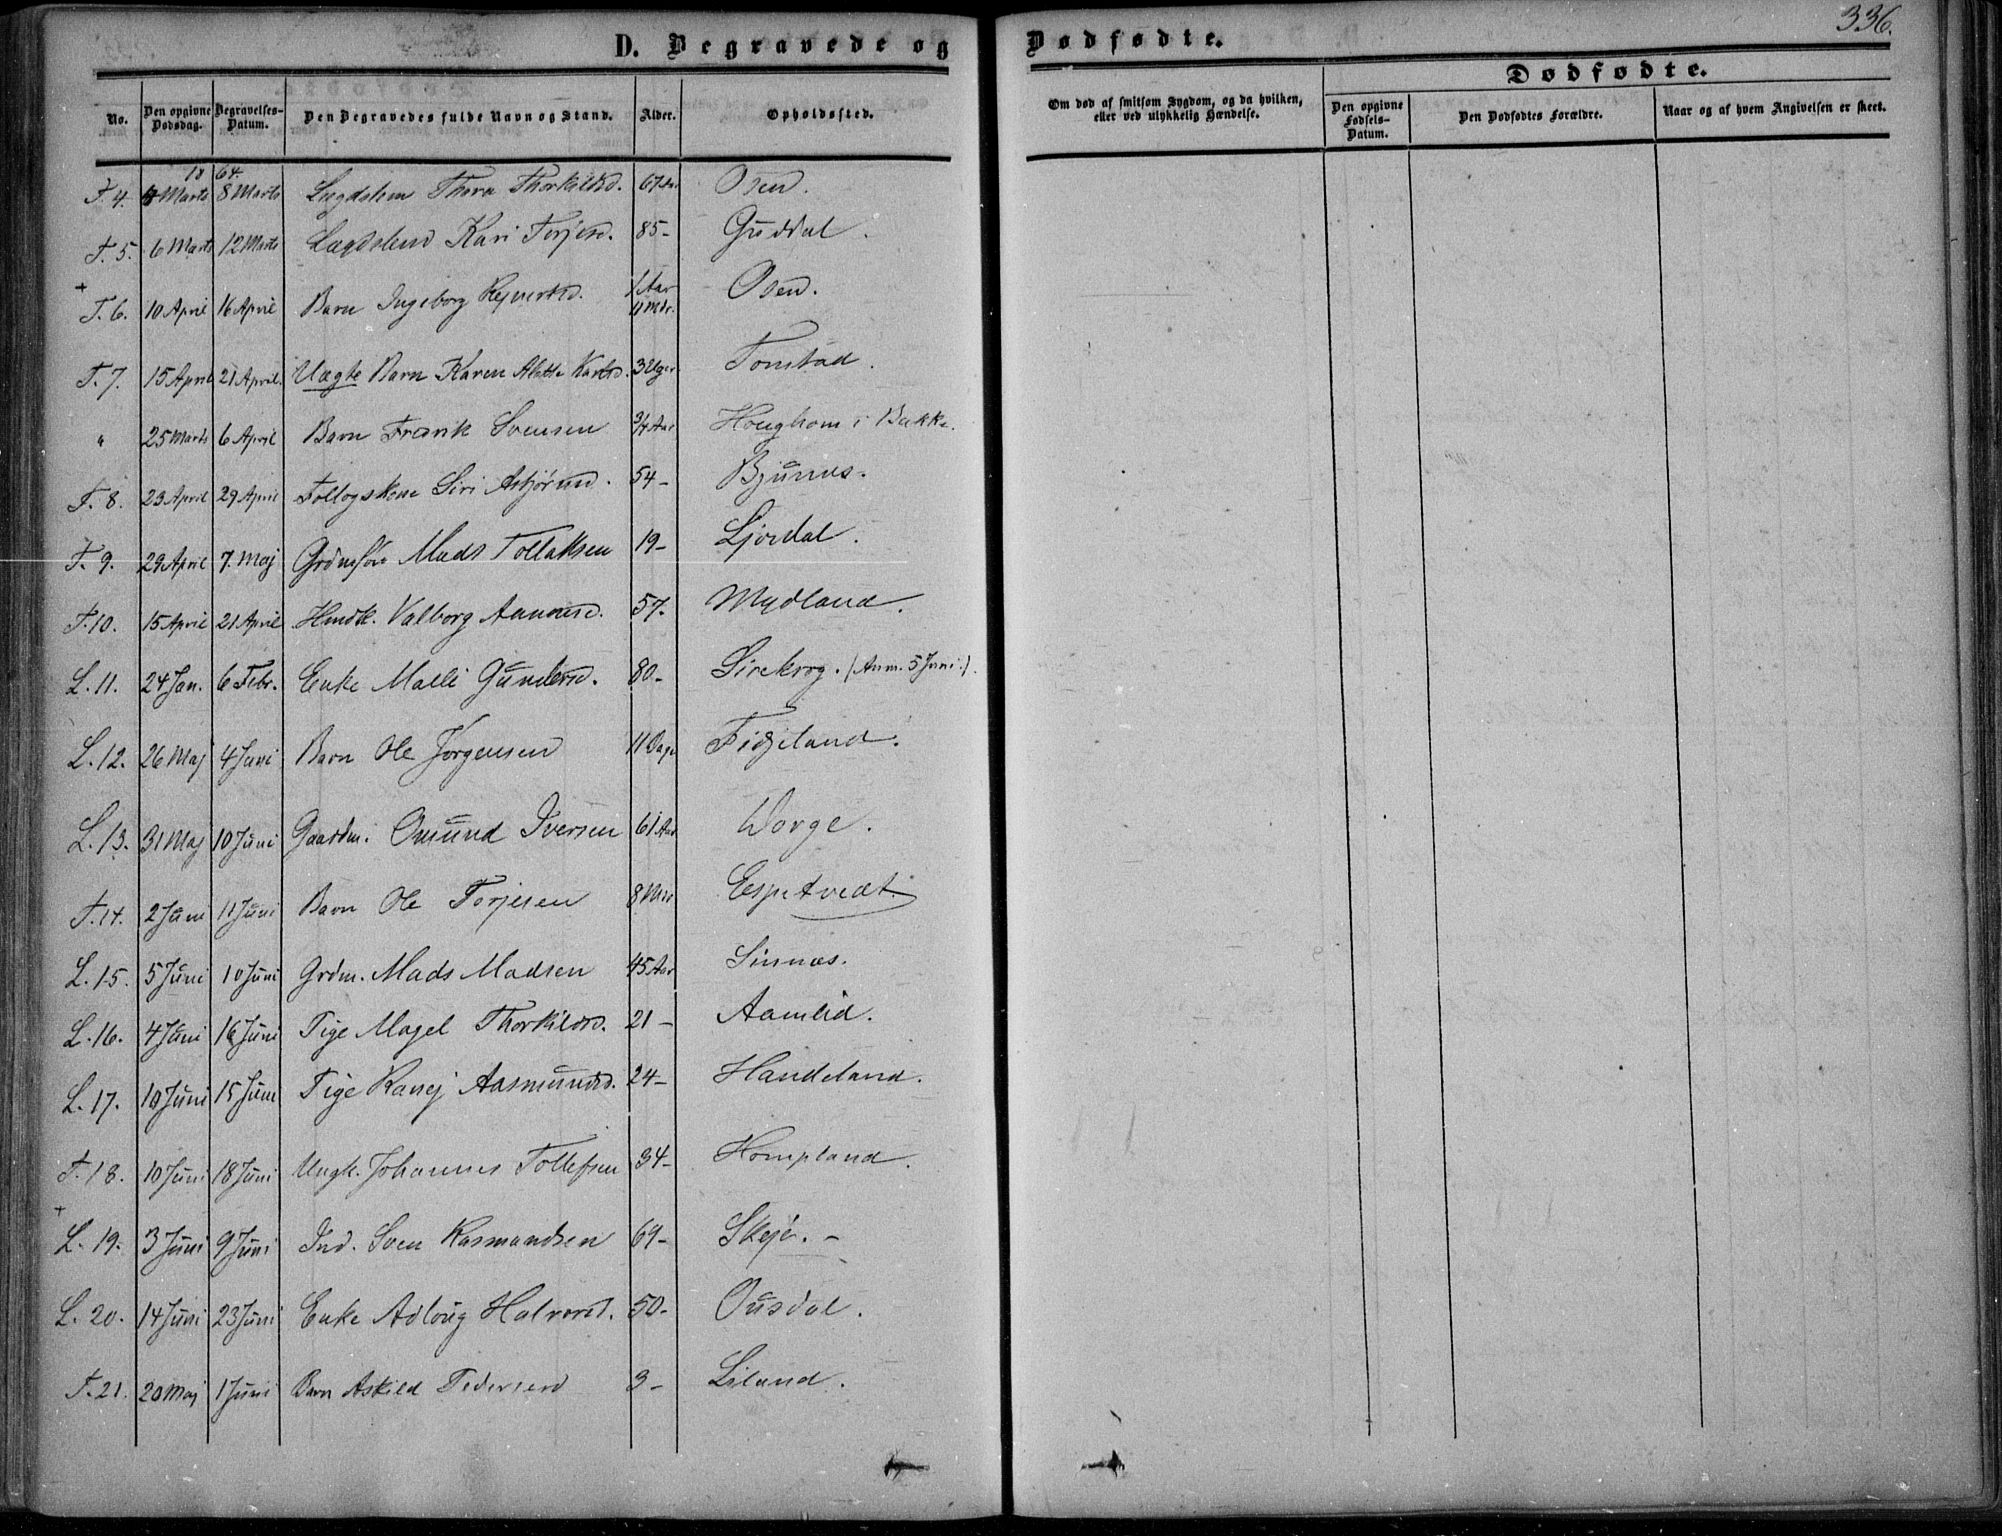 336.
D. Begravede og Dødfødte.
Dødfødte.
No. Den opgivne Dødsdag. Begravelses-Datum. Den Begravedes fulde Navn og Stand. Alder. Opholdssted. Om død af smitsom Sygdom, og da hvilken, eller ved ulykkelig Hændelse. Den opgivne Fødsels-Datum. Den Dødfødtes Forældre. Naar og af hvem Angivelsen er skeet.
1864.
T. 4. 4 Marts 8 Marts Lægdslem Thora Thorkildsd. 67 Aar Osen.
T. 5. 6 Marts 12 Marts Lægdslem Kari Terjesd. 85- Guddal.
+
T. 6. 10 April 16 April Barn Ingeborg 1 Aar 11 Mdr. Osen.
T. 7. 15 April 21 April. Uægte Barn Karen Alette 3 Uger Tonstad.
" 25 Marts 6 April Barn Frank Svensen 3/4 Aar Houghom i Bakke.
T. 8. 23 April 29 April Siri Asbjørnsd. 54- Bjunes.
T. 9. 29 April 7. Maj Grdmsøn Mads Tollaksen 19- Ljosdal.
T. 10. 15 April 21 April Hmdk. Valborg Aanensd. 57. Mydland.
L. 11. 24 Jan. 6 Febr. Enke Malli Gundersd. 80- Sirekrog. (Anm. 5 Juni.).
L. 12. 26 Maj 4 Juni Barn Ole Jørgensen 11 Dage Fidjeland.
L. 13. 31 Maj 10 Juni Gaardm. Omund Iversen 61 Aar Dorge.
T. 14. 2 Juni 11 Juni Barn Ole Terjesen 8 Mdr Espetvedt.
L. 15. 5 Juni 10 Juni Grdm. Mads Madsen 45 Aar Sinnæs.
L. 16. 4 Juni 16 Juni Pige Magel Thorkildsd. 21- Aamlid.
L. 17. 10 Juni 15 Juni Pige Ranej Aasmundsd. 24- Handeland.
T. 18. 10 Juni 18 Juni Ungk. Johannes Tollefsen 34- Hompland.
+
L. 19. 3 Juni 9 Juni Ind. Sven Rasmundsen 69- -
L. 20. 14 Juni 23 Juni Enke Adloug Halvorsd. 50- Ousdal.
T. 21. 20 Maj 1 Juni Barn Askild Pedersen 3- Liland.